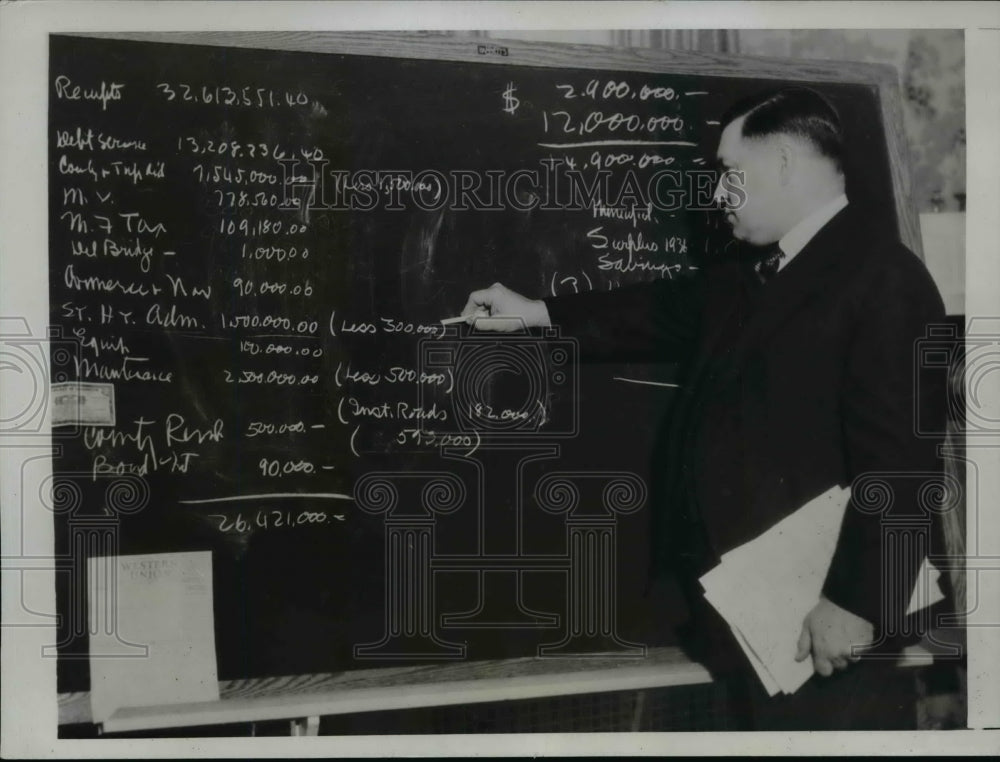 Receipts 32,613,551.40
Debt Service 13,208,236.40
7,545,000.00 (Less 1,500,000)
M.V. 778,560.00
M.F Tax 109,180.00
Del Bridge - 1,000.00
Commerce + Nav 90,000.00
ST. HY. Adm. 1,500,000.00 (Less 300,000)
Equip 100,000.00
Maintenance 2,500,000.00 (Less 500,000)
(Inst. Roads 182,000)
County 500,000.- (593,000)
Bond 90,000.-
26,421,000.-
$ 2,900,000.-
12,000,000.-
+4,900,000-
Municipal.-
Surplus 193
Savings -
(3)
HISTORIC IMAGES
WESTERN
UNION